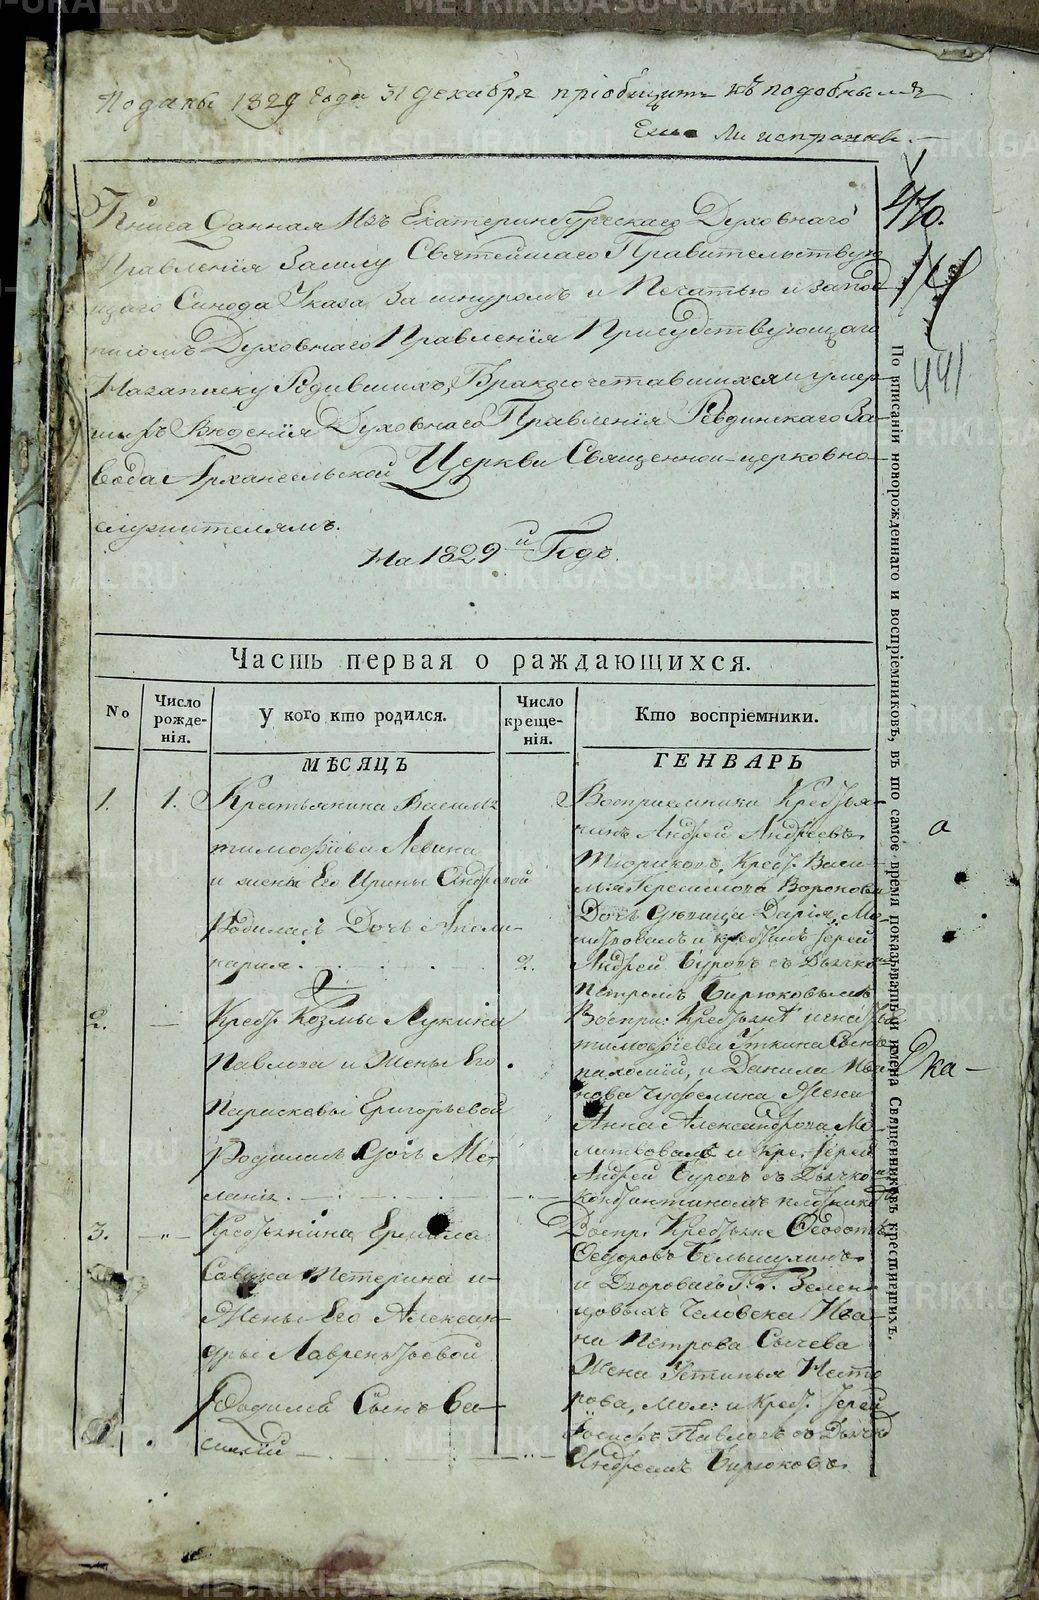 Поданы 1829 Года 31 декабря пріобщить къ подобнымъ
470.
441
Книга данная Изъ Екатеринбургскаго Духовнаго
Правленія Всилу Святейшаго Правительствую
щаго Синода Указа за шнуромъ и Печатью и запод
писомъ Духовнаго Правленія Присудствующаго
Назаписку Родившихъ, Бракосочетавшихся и умер
шихъ Ведения Духовнаго Правленія Ревдинскаго За-
вода Архангельской Церкви Священно-церковно-
служителямъ.
На 1829й Годъ.
Часть первая о раждающихся.
No
Число рожде-нія.
У кого кто родился.
Число креще-нія.
Кто воспріемники.
МѢСЯЦЪ
ГЕНВАРЬ
1. 1. Крестьянина Василья
тимофѣева Левина
и жены Его Ирины Андреевой
Родилась Дочь Аполи-
нария. 2.
Восприемники Крестья-
нинъ Андрей Андреевъ
Крест. Васи-
лья Герасимова Воронова
Дочь девица Дарія, Мо-
литвовалъ и крестилъ Іерей
Андрей Суровъ съ Дьячко
Петромъ Бирюковымъ
2. Крест. Козмы Лукина
Павлова и Жены Его
Параскевы Григорьевой
Родилась Дочь Ме-
ланія.
Воспри: Крестьянъ Игнатья
тимофѣева Уткина Сынъ
пахомій, и Данила Ива
нова Жена
Анна Александрова Мо-
литвовалъ и Кре. Іерей
Андрей Суровъ съ Дьячко
Константиномъ
3. Крестьянина Ермила
Савина Тетерина и
Жены Его Алексан-
дры Лаврентьевой
Родился Сынъ Ва-
силій
Воспр. Крестьяне Феодотъ
Федоровъ
и Дворовыхъ Г. Г. Зелен-
цовыхъ Человека Ива-
на Петрова Сычева
Жена Устинья Несто
рова, Мол: и Крест. Іерей
Іосифъ Павловъ съ Дьячко
Андреемъ Бирюковъ.
а
По вписаніи новорожденнаго и воспріемниковъ, въ то самое время показывать и имена Священниковъ крестившихъ.
METRIKI.GASO-URAL.RU